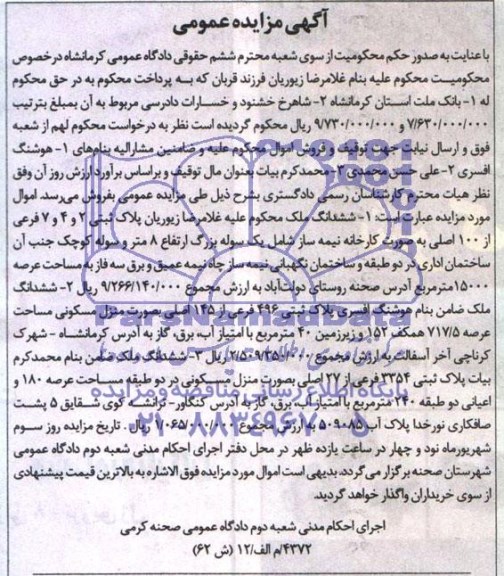 آگهی مزایده عمومی
با عنایت به صدور حکم محکومیت از سوی شعبه محترم ششم حقوقی دادگاه عمومی کرمانشاه درخصوص
محکومیت محکوم علیه بنام غلامرضا زیوریان فرزند قربان که به پرداخت محکوم به در حق محکوم
له ۱- بانک ملت استان کرمانشاه ۲- شاهرخ خشنود و خسارات دادرسی مربوط به آن بمبلغ بترتیب
۷/۶۳۰/۰۰۰/۰۰۰ و ۹/۷۳۰/۰۰۰/۰۰۰ ریال محکوم گردیده است نظر به درخواست محکوم لهم از شعبه
فوق و ارسال نیابت جهت توقیف و فروش اموال محکوم علیه و ضامنین مشارالیه بنام‌های ۱- هوشنگ
افسری ۲- علی حسن محمدی ۳- محمدکرم بیات بعنوان مال توقیف و براساس برآورد ارزش روز آن وفق
نظر هیات محترم کارشناسان رسمی دادگستری بشرح ذیل طی مزایده عمومی بفروش می‌رسد. اموال
مورد مزایده عبارت است: ۱- ششدانگ ملک محکوم علیه غلامرضا زیوریان پلاک ثبتی ۲ و ۴ و ۷ فرعی
از ۱۰۰ اصلی به صورت کارخانه نیمه ساز شامل یک سوله بزرگ ارتفاع ۸ متر و سوله کوچک جنب آن
ساختمان اداری در دو طبقه و ساختمان نگهبانی نیمه ساز چاه نیمه عمیق و برق سه فاز به مساحت عرصه
۱۵۰۰۰مترمربع آدرس صحنه روستای دولت‌آباد به ارزش مجموع ۹/۲۶۶/۱۴۰/۰۰۰ ریال ۲- ششدانگ
ملک ضامن بنام هوشنگ افسری پلاک ثبتی ۴۹۶ فرعی از ۱۴۵ اصلی بصورت منزل مسکونی مساحت
عرصه ۷۱۷/۵ همکف ۱۵۲ و زیرزمین ۴۰ مترمربع با امتیاز آب، برق، گاز به آدرس کرمانشاه - شهرک
کرناچی آخر آسفالت به ارزش مجموع ۲/۵۰۹/۳۵۰/۰۰۰ ریال ۳- ششدانگ ملک ضامن بنام محمدکرم
بیات پلاک ثبتی ۳۳۵۴ فرعی از ۲۷ اصلی بصورت منزل مسکونی در دو طبقه مساحت عرصه ۱۸۰ و
اعیانی دو طبقه ۲۴۰ مترمربع با امتیاز آب، برق، گاز به آدرس کنگاور- ترانسه کوی شقایق ۵ پشت
صافکاری نورخدا پلاک آب ۵۰۹۰۸۵ به ارزش مجموع ۱/۰۶۵/۰۰۰/۰۰۰ ریال. تاریخ مزایده روز سوم
شهریورماه نود و چهار در ساعت یازده ظهر در محل دفتر اجرای احکام مدنی شعبه دوم دادگاه عمومی
شهرستان صحنه برگزار می‌گردد. بدیهی است اموال مورد مزایده فوق الاشاره به بالاترین قیمت پیشنهادی
از سوی خریداران واگذار خواهد گردید.
اجرای احکام مدنی شعبه دوم دادگاه عمومی صحنه کرمی
۴۳۷۲/م الف/۱۲ (ش ۶۲)
ParsNamadData
پایگاه اطلاع رسانی مناقصه و مزایده
۰۲۱-۸۸۳۴۹۶۷۰